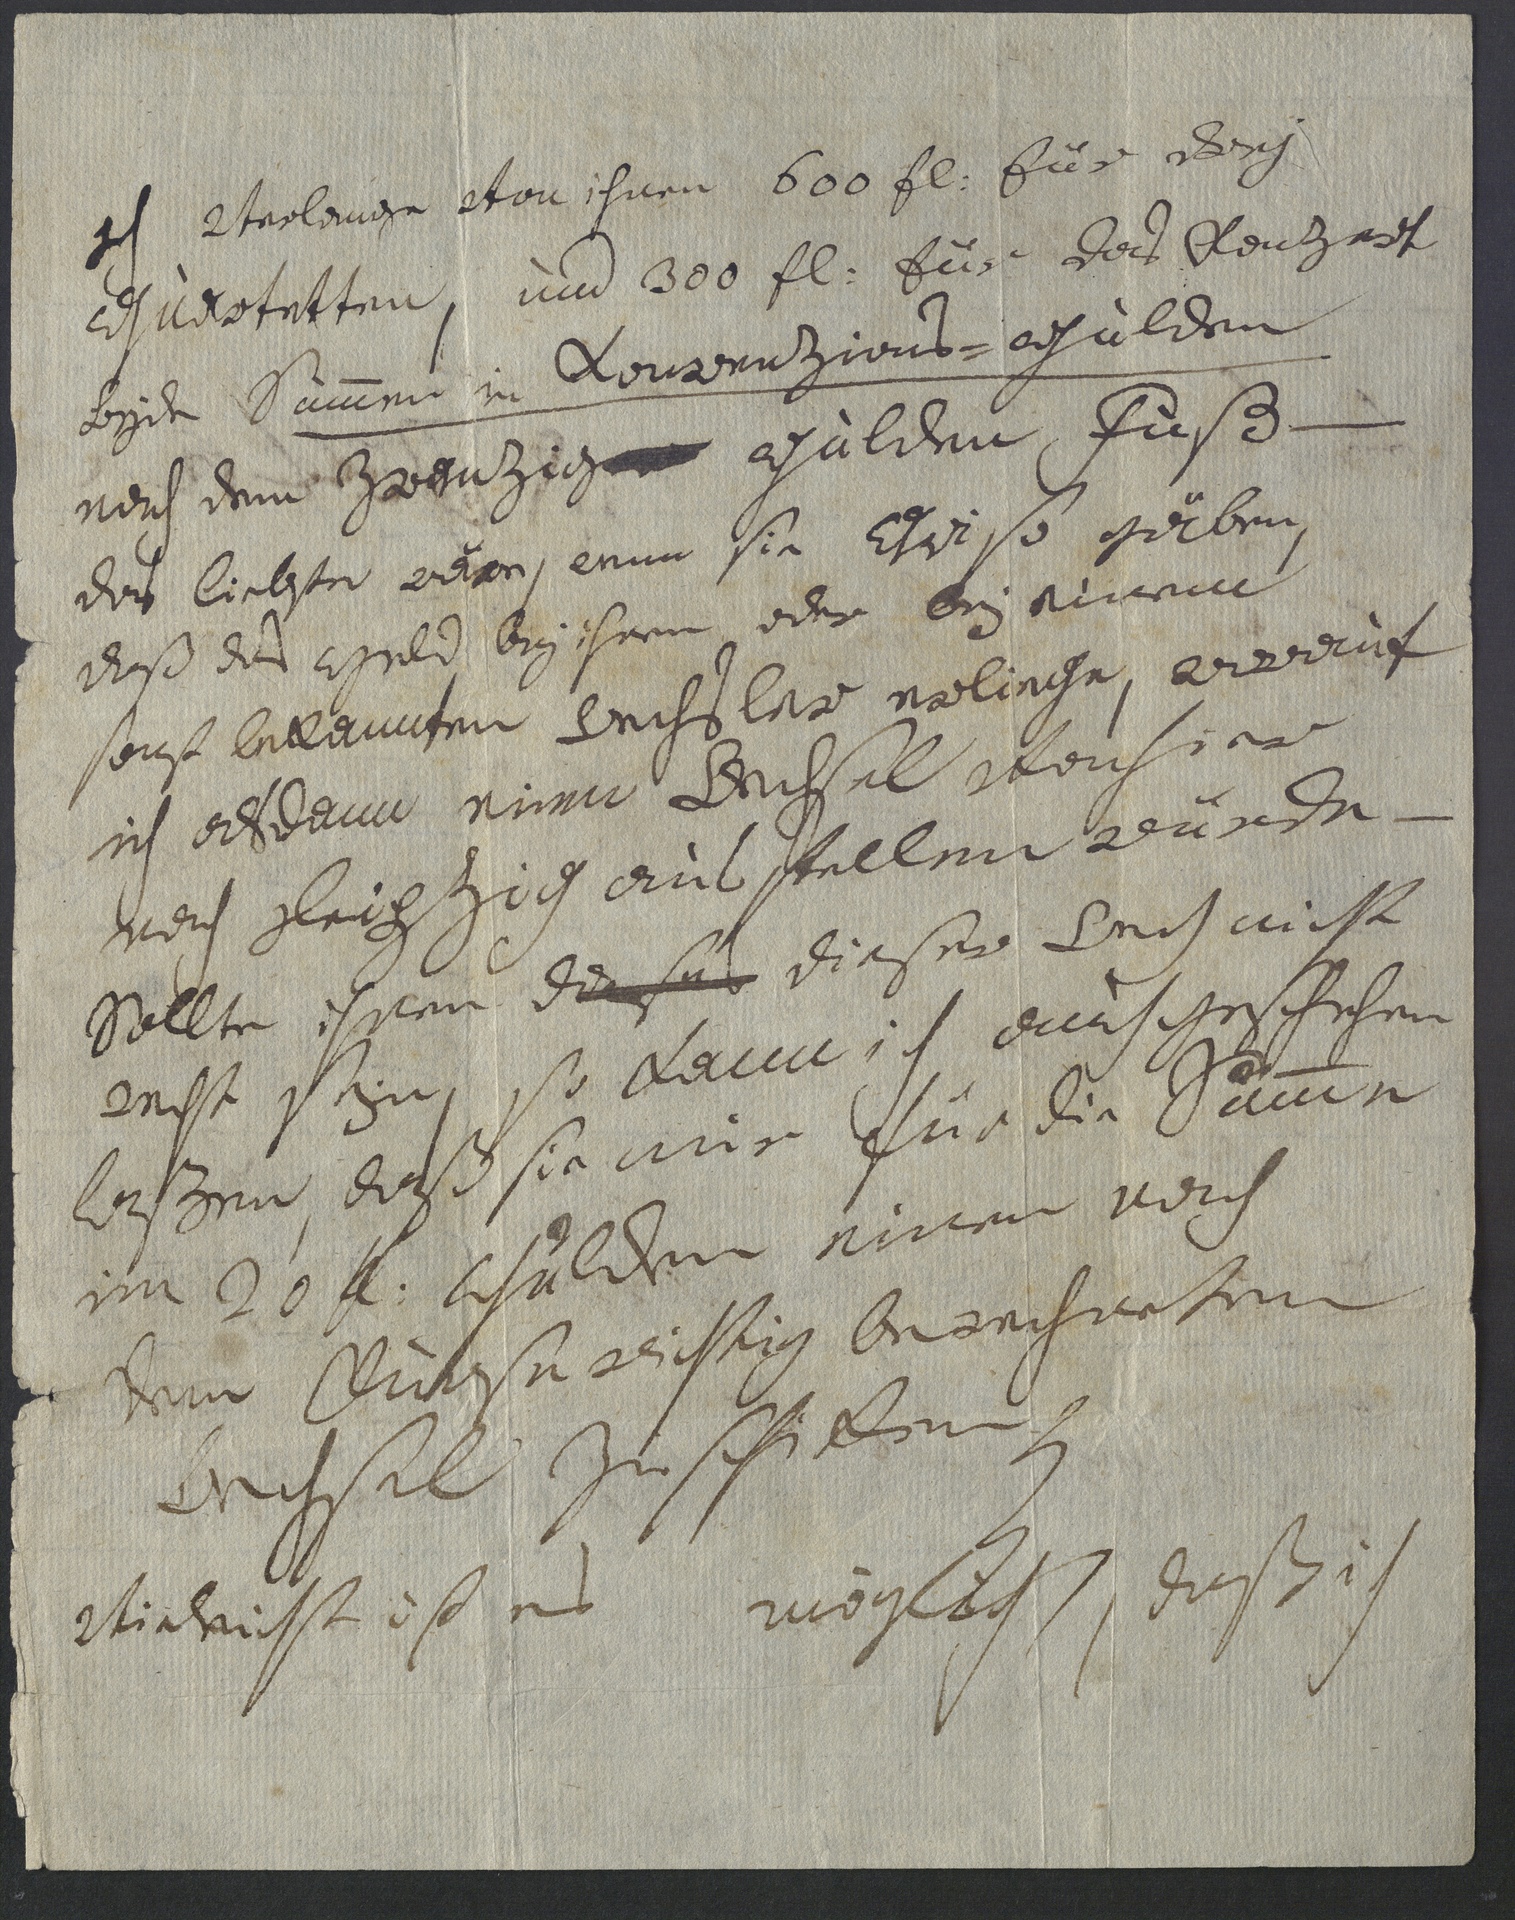 ich verlange von ihnen 600 fl: für drey
Quartetten, und 300 fl: für das Konzert
beyde Sum̅en in Konvenzions=Gulden
nach dem zwanziger Gulden Fuß —
das liebste wäre, wenn sie Aviso gäben,
daß das Geld bey ihnen oder bey einem
sonst bekannten Wechsler erliege, worauf
ich alsdann einen Wechsel von hier
nach Leipzig ausstellen würde —
Sollte ihnen dieser Weg nicht
recht seyn, so kann ich auch geschehen
laßen, daß sie mir für die Sum̅e
im 20 fl: Gulden einen nach
dem Kurse richtig berechneten
Wechsel zuschicken
vieleicht ist es möglich, daß ich